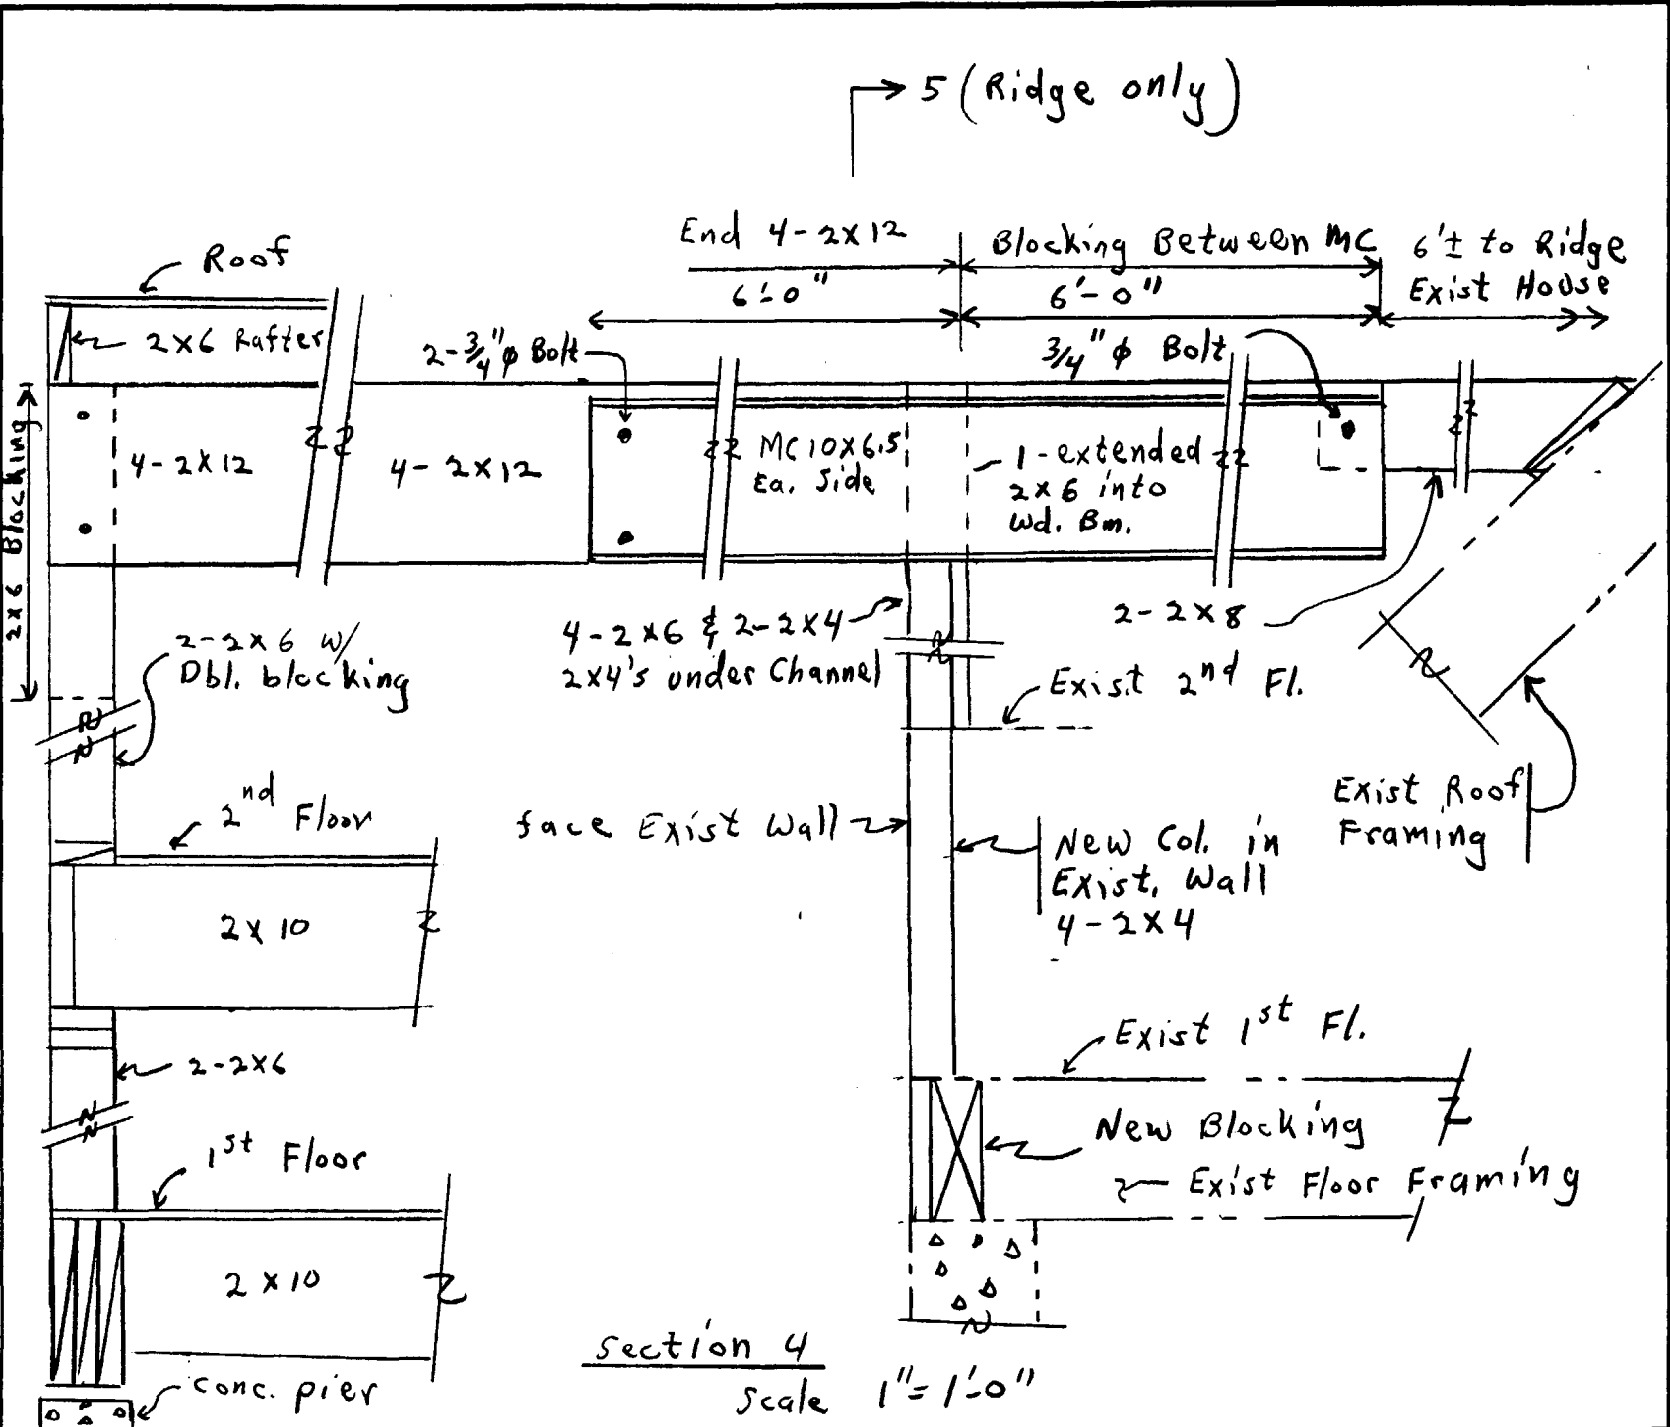 5 (Ridge only)
End 4-2x12
Blocking Between MC
6'± to Ridge
Exist House
6'-0"
6'-0"
Roof
2x6 Rafter
2-3/4"ϕ Bolt
3/4"ϕ Bolt
2x6 Blocking
4-2x12
4-2x12
MC10x6.5
Ea. Side
1-extended
2x6 into
Wd. Bm.
2-2x6 w/
Dbl. blocking
4-2x6 & 2-2x4
2x4's under Channel
2-2x8
Exist 2nd Fl.
Exist Roof
Framing
2nd Floor
face Exist Wall
New Col. in
Exist. Wall
4-2x4
2x10
2-2x6
Exist 1st Fl.
New Blocking
Exist Floor Framing
1st Floor
2x10
conc. pier
Section 4
Scale 1"=1'-0"